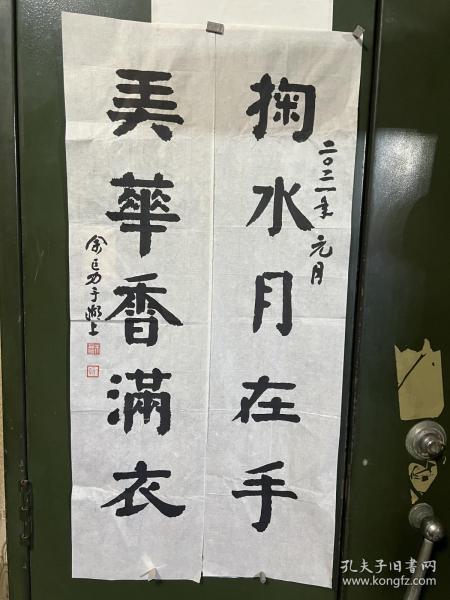 掬水月在手
二〇二一年 元月
弄華香滿衣
余巨力于湖上
孔夫子旧书网
www.kongfz.com